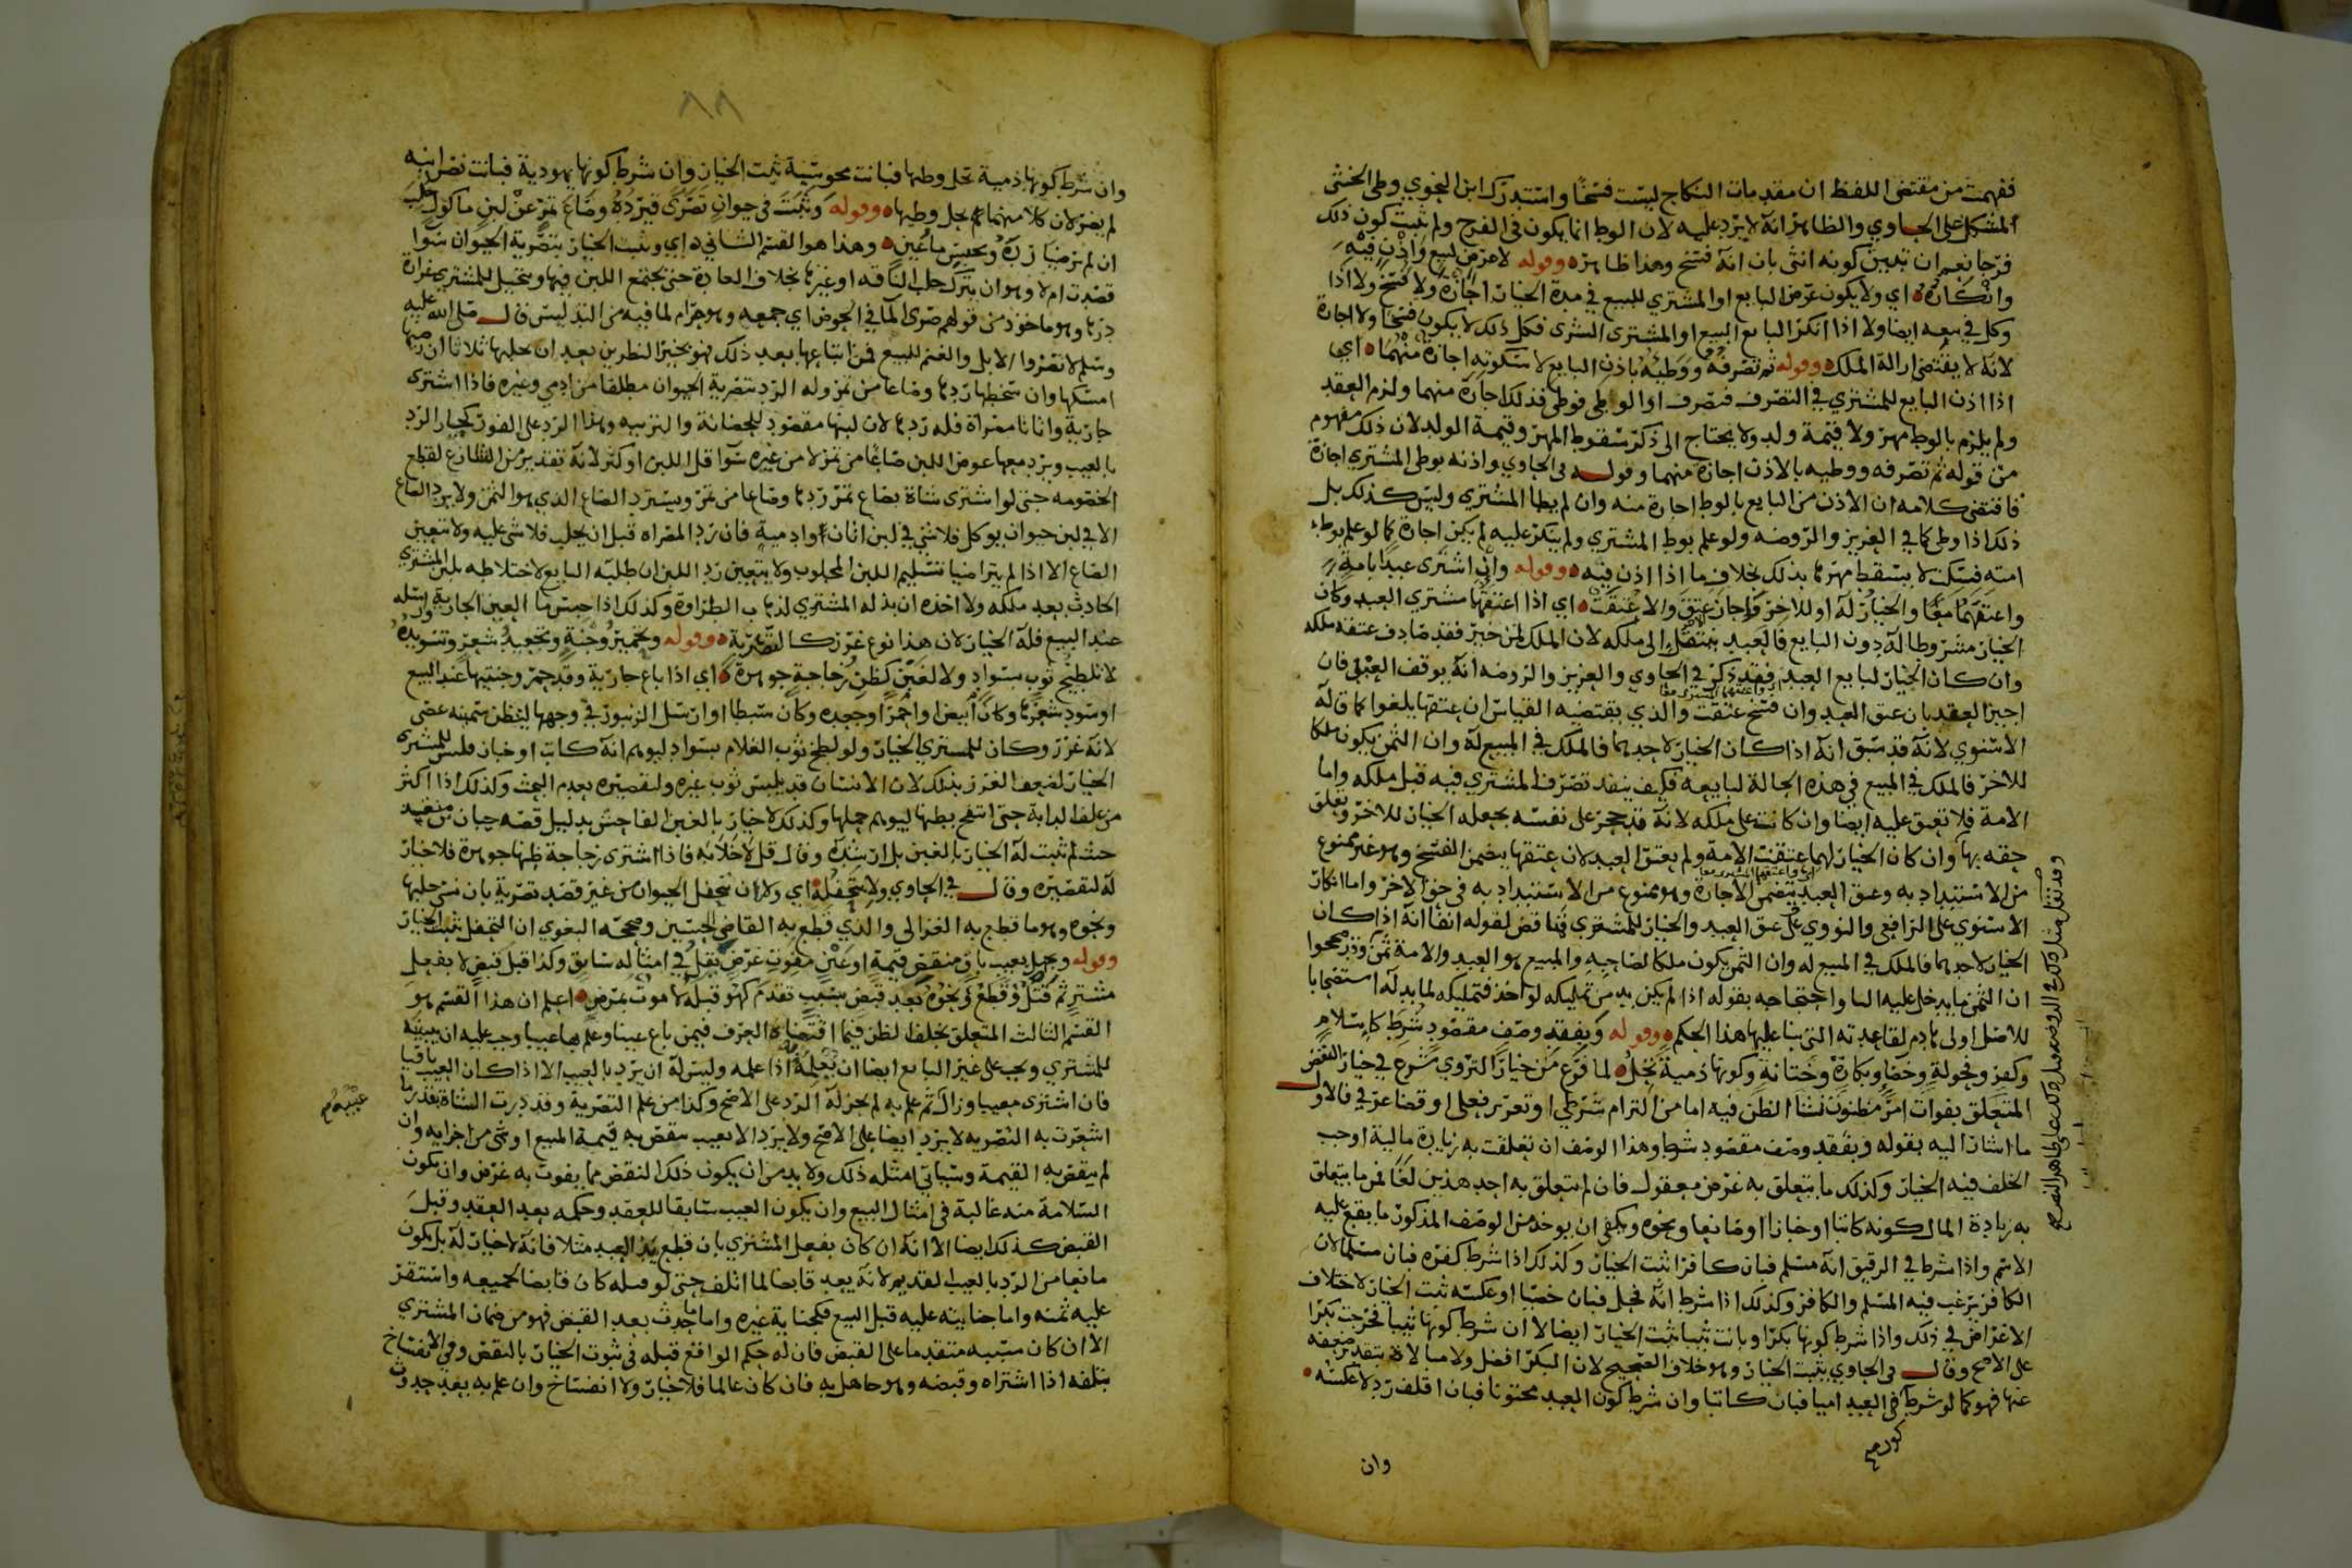 ففهمت من مقتضى اللفظ ان مقدمات النكاح ليست فسخا واستدرك ابن النحوي وطي الخنثى
المشكل على الحاوي والظاهر انه لا يرد عليه لان الوطا انما يكون في الفرج ولم يثبت كون ذلك
فرجا نعم ان تبين كونه انثى بان انه فسخ وهذا ظاهر وقوله لا عرض لبيع واذن فيه
وانكاره اي ولا يكون عرض البايع او المشتري للبيع في مدة الخيار اجازة ولا فسخ ولا اذا
وكل في بيعه ايضا ولا اذا انكر البايع البيع او المشترى الشرى فكل ذلك لا يكون فسخا ولا اجازة
لانه لا يقتضي ازالة الملك وقوله ثم تصرفه ووطيه باذن البايع لا سكوته اجازة منهما اي
اذا اذن البايع للمشتري في التصرف فتصرف او الوطي فوطي فذلك اجازة منهما ولزم العقد
ولم يلزم بالوطي مهر ولا قيمة ولد ولا يحتاج الى ذكر سقوط المهر وقيمة الولد لان ذلك مفهوم
من قوله ثم تصرفه ووطيه بالاذن اجازة منهما وقوله في الحاوي واذنه بوطي المشتري اجازة
فاقتضى كلامه ان الاذن من البايع بالوطي اجازة منه وان لم يطا المشتري وليس كذلك بل
ذلك اذا وطي كما في العزيز والروضه ولو علم بوطي المشتري ولم ينكر عليه لم يكن اجازة كما لو علم بوطء
امته فسكت لا يسقط مهرها بذلك بخلاف ما اذا اذن فيه وقوله وان اشترى عبدا بامة
واعتقهما معا والخيار له او للاخر فاجاز عتق والا عتقت اي اذا اعتقهما مشتري العبد وكان
الخيار مشروطا له دون البايع فالعبد ينتقل الى ملكه لان الملك لمن خير فقد صادف عتقه ملكه
وان كان الخيار لبايع العبد فقد ذكر في الحاوي والعزيز والروضه انه يوقف العتق فان
اجيز العقد بان عتق العبد وان فسخ عتقت والذي يقتضيه القياس ان عتقها يلغوا كما قاله
الاسنوي لانه قد سبق انه اذا كان الخيار لاحدهما فالملك في المبيع له وان الثمن يكون ملكا
للاخر فالملك في المبيع في هذه الحالة لبايعه فكيف ينفذ تصرف المشتري فيه قبل ملكه واما
الامة فلا تعتق عليه ايضا وان كانت على ملكه لانه قد حجر على نفسه بجعله الخيار للاخر وتعلق
حقه بها وان كان الخيار لهما عتقت الامة ولم يعتق العبد لان عتقها يضمن الفسخ وهو غير ممنوع
من الاستبداد به وعتق العبد يتضمن الاجازة وهو ممنوع من الاستبداد به في حق الاخر واما انكار
الاسنوي على الرافعي والنووي على عتق العبد والخيار للمشتري فناقض لقوله انفا انه اذا كان
الخيار لاحدهما فالملك في المبيع له وان الثمن يكون ملكا لصاحبه والمبيع هو العبد والامة ثمن وقد صححوا
ان الثمن ما يدخل عليه البا واحتجاجه بقوله اذا لم يكن بد من تمليكه لواحد فتمليكه لما بد له استصحابا
للاصل اولى هادم لقاعدته التي بنا عليها هذا الحكم وقوله وبفقد وصف مقصود شرط كاسلام
وكفر وفحولة وخصاء وبكارة وختانة وكونها ذمية تحل لما فرغ من خيار التروي شرع في خيار النقص
المتعلق بفوات امر مظنون نشا الظن فيه اما من التزام شرطي او تغرير فعلي او قضا عرفي فالاول
ما اشار اليه بقوله وبفقد وصف مقصود شرط وهذا الوصف ان تعلقت به زيادة مالية اوجب
الخلف فيه الخيار وكذلك ما يتعلق به غرض معقول فان لم يتعلق به احد هذين لغا لمن ما يتعلق
به زيادة المال كونه كاتبا او خبازا او صانعا ونحوه ويكفي ان يوجد من الوصف المذكور ما يقع عليه
الاسم واذا شرط في الرقيق انه مسلم فبان كافرا ثبت الخيار وكذلك اذا شرط كفره فبان مسلما لان
الكافر يرغب فيه المسلم والكافر وكذلك اذا شرط انه فحل فبان خصيا او عكسه ثبت الخيار لاختلاف
الاغراض في ذلك واذا شرط كونها بكرا وبانت ثيبا ثبت الخيار ايضا لا ان شرط كونها ثيبا فخرجت بكرا
على الاصح وقال في الحاوي يثبت الخيار وهو خلاف الصحيح لان البكر افضل ولا مبالاة بتقدير ضعفه
عنها فهو كما لو شرط في العبد اميا فبان كاتبا وان شرط كون العبد مختونا فبان اقلف رد لا عكسه
وان
٨٨
وان شرط كونها ذمية تحل وطيها فبانت مجوسية ثبت الخيار وان شرط كونها يهودية فبانت نصرانيه
لم يضر لان كلا منهما يحل وطيها وقوله وثبت في حيوان تصرى فيرده وصاع تمر عن لبن ماكول حلب
ان لم يرضيا زده وتحبس ما عين وهذا هو القسم الثاني اي ويثبت الخيار بتصرية الحيوان سوا
قصدت ام لا وهو ان يترك حلب الناقه او غيرها بخلاف العادة حتى يجتمع اللبن فيها ويتخيل للمشتري غزارة
درها وهو ماخوذ من قولهم صرى الما في الحوض اي جمعه وهو حرام لما فيه من التدليس قال صلى الله عليه
وسلم لا تصروا الابل والغنم للبيع فمن ابتاعها بعد ذلك فهو بخير النظرين بعد ان يحلبها ثلاثا ان رضيها
امسكها وان سخطها ردها وصاعا من تمر وله الرد بتصرية الحيوان مطلقا من ادمي وغيره فاذا اشترى
جارية واتانا مصراة فله ردها لان لبنها مقصود للحضانة والتربيه وهذا الرد على الفور كخيار الرد
بالعيب ويرد معها عوض اللبن صاعا من تمر لا من غيره سوا قل اللبن او كثر لانه تقدير من الشارع لقطع
الخصومه حتى لو اشترى شاة بصاع تمر ردها وصاعا من تمر ويسترد الصاع الذي هو الثمن ولا يرد الصاع
الا في لبن حيوان يوكل فلا شي في لبن اتان او ادمية فان رد المصراه قبل ان يحلب فلا شي عليه ولا يتعين
الصاع الا اذا لم يتراضيا بتسليم اللبن المحلوب ولا يتعين رد اللبن ان طلبه البايع لاختلاطه بلبن المشتري
الحادث بعد ملكه ولا اخذه ان بذله المشتري لذهاب الطراوة وكذلك اذا حبس ما العين الجارية وارسله
عند البيع فله الخيار لان هذا نوع غرر كالتصرية وقوله وتحمير وجنة وتجعيد شعر وتسويده
لا تلطيخ ثوب بسواد ولا لغبن كظن زجاجة جوهرة اي اذا باع جارية وقد حمر وجنتيها عند البيع
اوسود شعرها وكان ابيض او احمرا وجعده وكان سبطا او ارسل الزنبور في وجهها ليظن سمينه عصى
لانه غرر وكان للمشتري الخيار ولو لطخ ثوب الغلام بسواد ليوهم انه كاتب او خباز فليس للمشترى
الخيار لضعف الغرر بذلك لان الانسان قد يلبس ثوب غيره ولتقصيره بعدم البحث وكذلك اذا اكثر
من علف الدابة حتى انتفخ بطنها ليوهم حملها وكذلك لا خيار بالغبن الفاحش بدليل قصه حبان بن منقذ
حيث لم يثبت له الخيار بالغبن بل ارشده وقال قل لا خلابه فاذا اشترى زجاجة ظنها جوهرة فلا خيار
له لتقصيره وقال في الحاوي ولا بتحفله اي ولا ان تحفل الحيوان من غير قصد تصرية بان نسي حلبها
ونحوه وهو ما قطع به الغزالى والذي قطع به القاضي الحسين وصححه البغوي ان التحفل يثبت الخيار
وقوله وبجهل بعيب باق منقص قيمة او عين مفوت غرض يقل في امثاله سابق وكذا قبل قبض لا بفعل
مشتر ثم قتل وقطع ونحوه بعد قبض بسبب تقدم كهو قبله لا موت بمرض اعلم ان هذا القسم هو
القسم الثالث المتعلق بخلف الظن فيما اقتضاه العرف فيمن باع عينا وعلم بها عيبا وجب عليه ان يبينه
للمشتري ويجب على غير البايع ايضا ان يعلمه اذا علمه وليس له ان يرد بالعيب الا اذا كان العيب باقيا
فان اشترى معيبا وزال ثم علم به لم يجز له الرد على الاصح وكذا من علم التصرية وقد درت الشاة بقدر ما
اشعرت به التصريه لا يرد ايضا على الاصح ولا يرد الا بعيب ينقص به قيمة المبيع او شى من اجزايه وان
لم ينقص به القيمة وسياتي امثله ذلك ولا بد من ان يكون ذلك النقص مما يفوت به غرض وان يكون
السلامة منه غالبة في امثال المبيع وان يكون العيب سابقا للعقد وحكمه بعد العقد وقبل
القبض كذلك ايضا الا انه ان كان بفعل المشتري بان قطع يد العبد مثلا فانه لا خيار له بل يكون
مانعا من الرد بالعيب القديم لانه يعد قابضا لما اتلف حتى لو قتله كان قابضا لجميعه واستقر
عليه ثمنه واما جنايته عليه قبل البيع فكجناية غيره واما ما حدث بعد القبض فهو من ضمان المشتري
الا ان كان سببه متقدما على القبض فان له حكم الواقع قبله في ثبوت الخيار بالنقص وفي الانفساخ
بتلفه اذا اشتراه وقبضه وهو جاهل به فان كان عالما فلا خيار ولا انفساخ وان علم به بعد حدوث